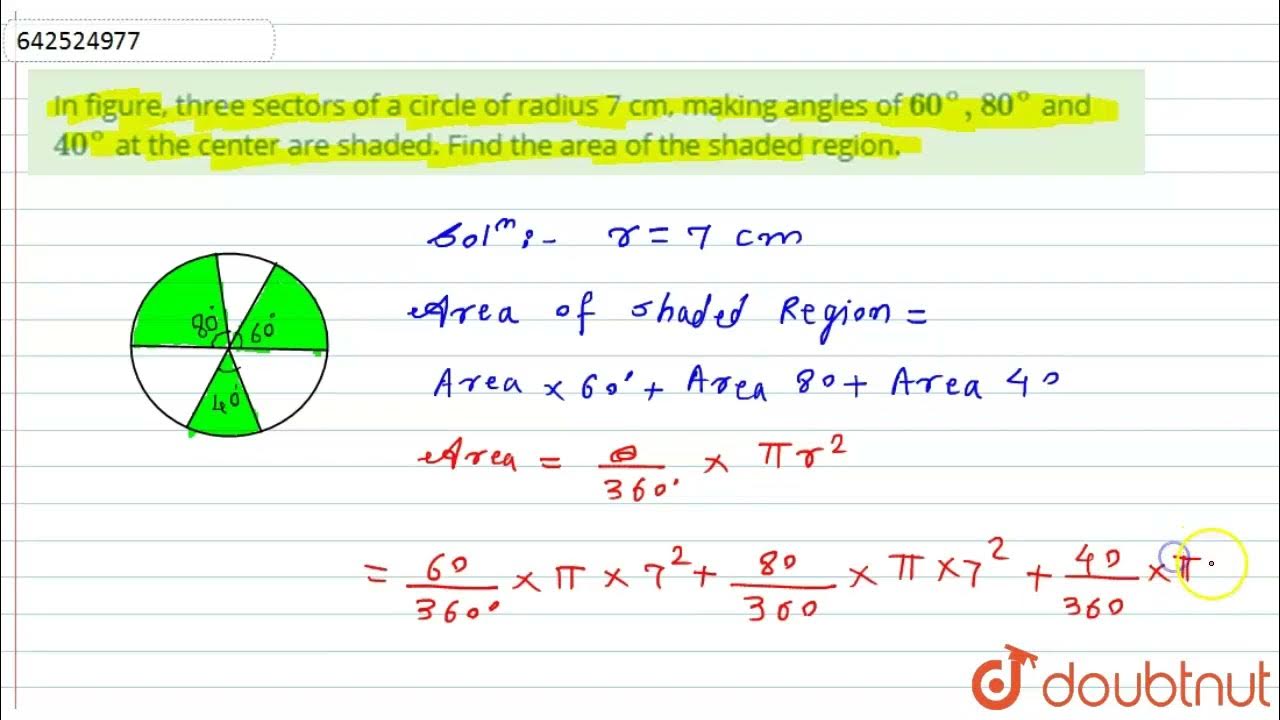 642524977
In figure, three sectors of a circle of radius 7 cm, making angles of 60°, 80° and
40° at the center are shaded. Find the area of the shaded region.
Solⁿ:- r = 7 cm
Area of shaded Region =
Area × 60° + Area 80 + Area 40
80° 60°
40°
Area = θ/360° × πr²
= 60/360° × π × 7² + 80/360 × π × 7² + 40/360 × π
doubtnut